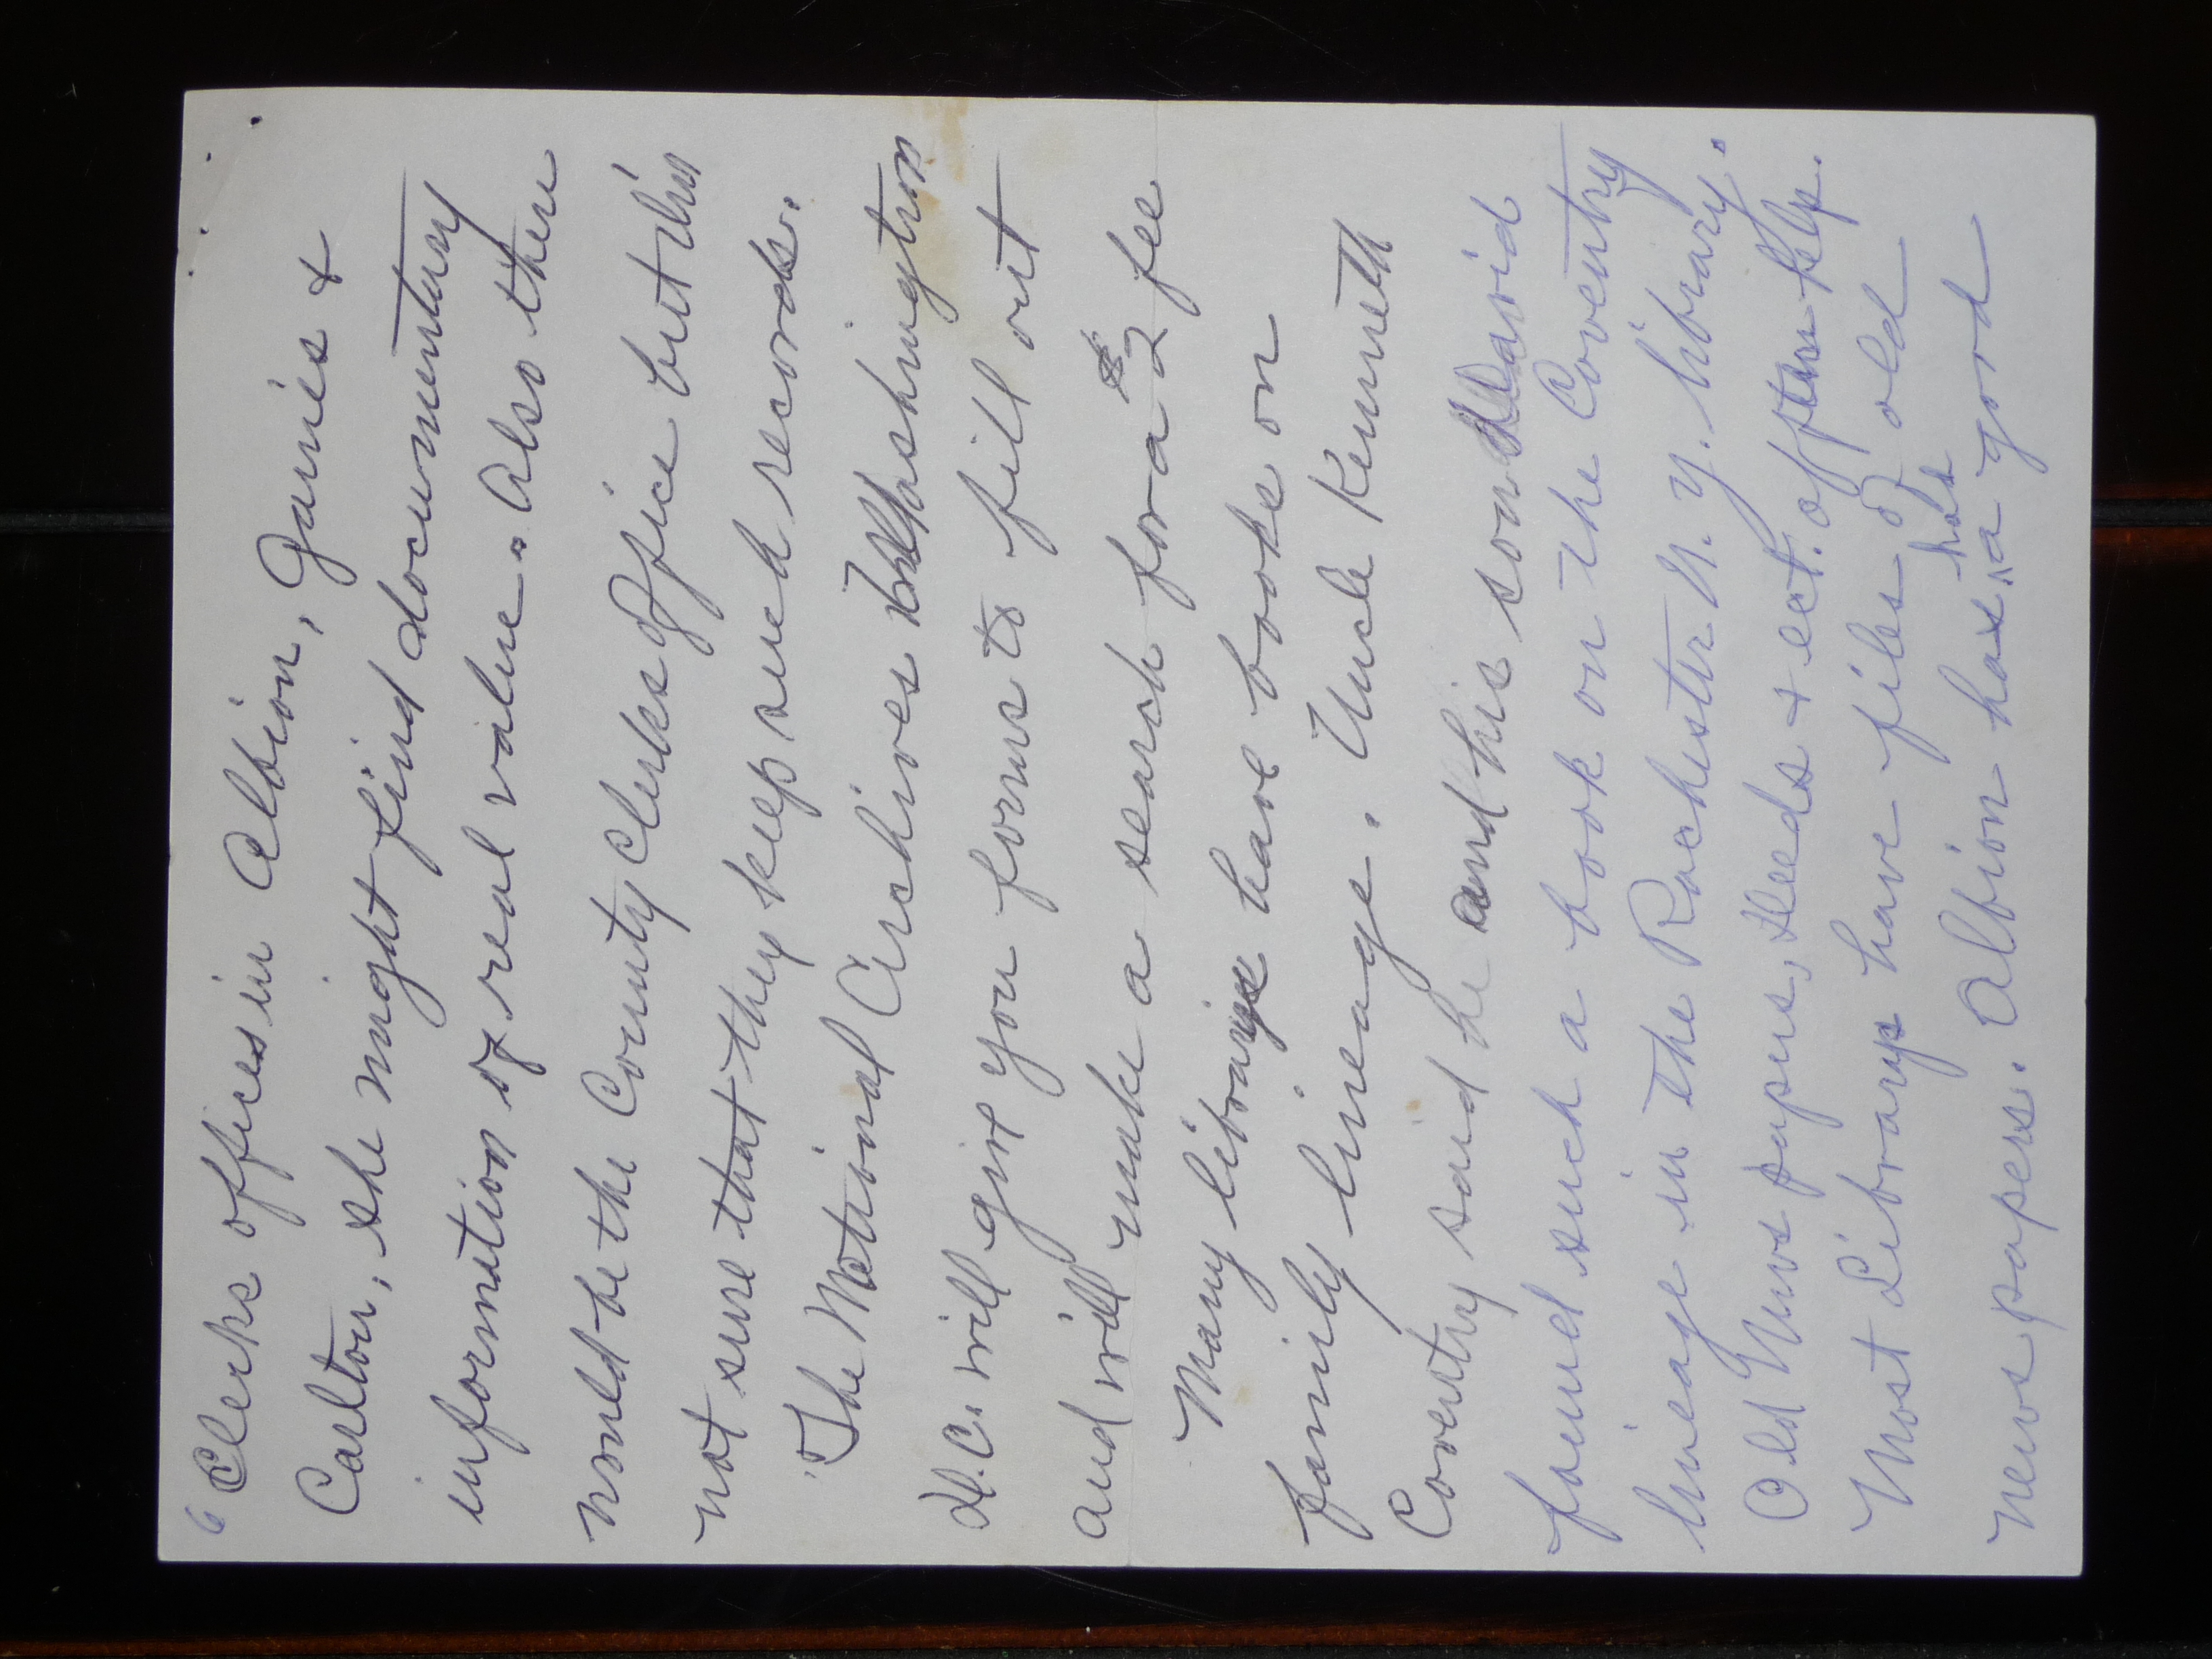 6
Clerks offices in Albion, Gaines &
Carlton, she might find documentary
information of real value. Also there
would be the County Clerks Office but I'm
not sure that they keep such records.
The National Archives Washington
D.C. will give you forms to fill out
and will make a search for a $2 fee
Many librarys have books on
family lineage. Uncle Kenneth
Coventry said he and his son David
found such a book on the Coventry
lineage in the Rochester N.Y. library.
Old News papers, deeds & ect. often help.
Most Librarys have files of old
news papers. Albion has a good